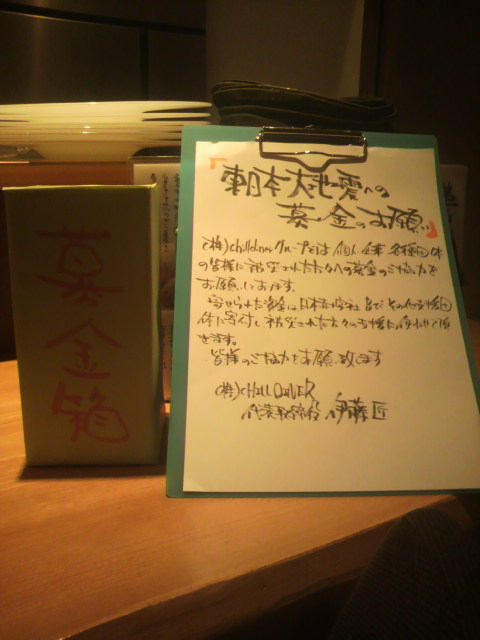 募金箱
「東日本大地震への
募金のお願い」
(株)chilldinerグループでは 個人 企業 各種団体
の皆様に被災された方々への募金のご協力を
お願いしております。
寄せられた資金は日本赤十字社 及び その他の支援団
体に寄付し 被災された方々の支援に役立てて頂
きます。
皆様のご協力をお願い致します
(株)CHILL DINER
代表取締役 伊藤 匠